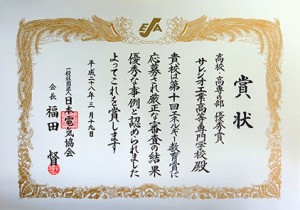 賞状
高校・高専の部 優秀賞
サレジオ工業高等専門学校 殿
貴校は第十回エネルギー教育賞に
応募され厳正な審査の結果
優秀な事例と認められました
よってこれを賞します
平成二十八年三月十九日
一般社団法人 日本電気協会
会長 福田 督